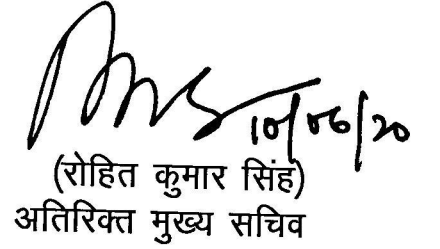 10/06/20
(रोहित कुमार सिंह)
अतिरिक्त मुख्य सचिव